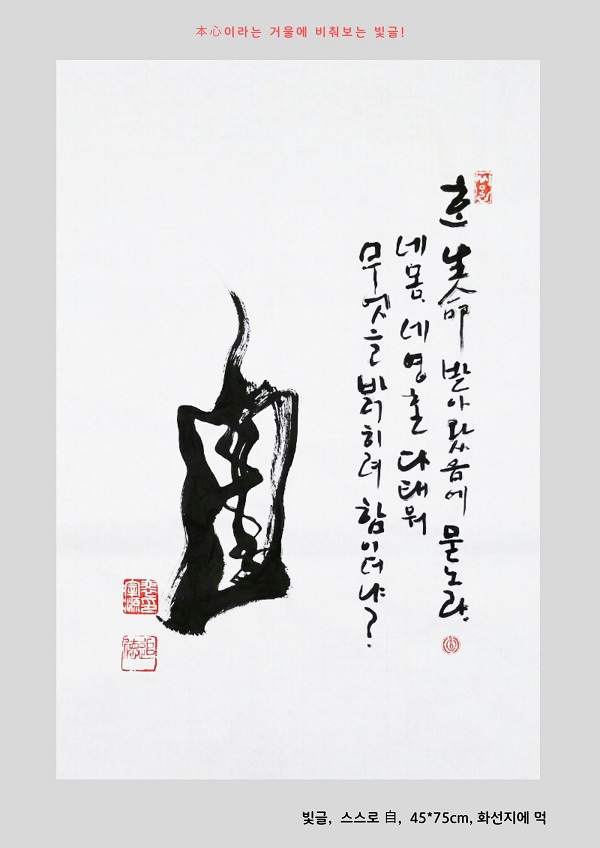 本心이라는 거울에 비춰보는 빛글!
흔 生命 받아 왔음에 묻노라.
네 몸, 네 영혼 다 태워
무엇을 밝히려 함이더냐?
自
빛글, 스스로 自, 45*75cm, 화선지에 먹